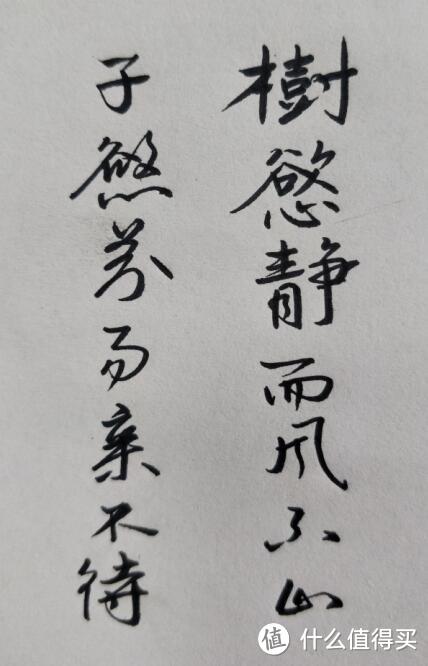 樹慾静而风不止
子慾养而亲不待
值 什么值得买